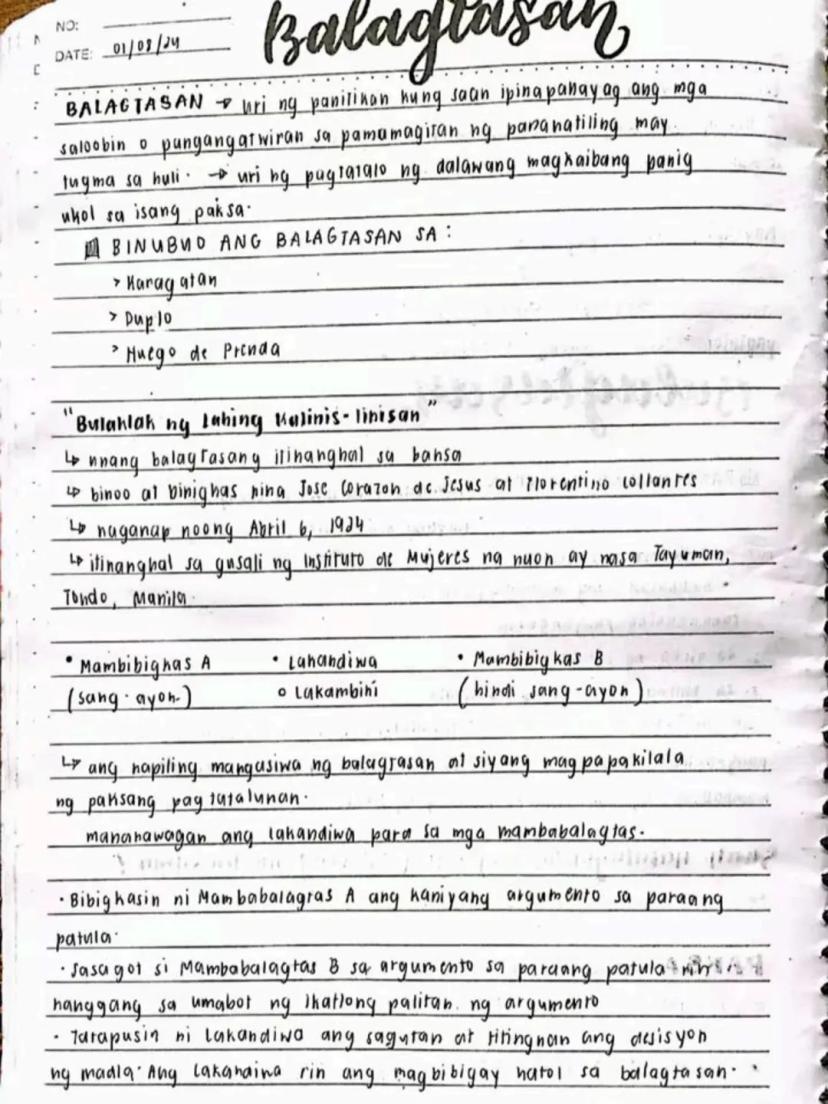 Balagtasan
NO:
DATE: 01/08/24
BALAGTASAN → uri ng panitikan kung saan ipinapahayag ang mga
saloobin o pangangatwiran sa pamamagitan ng pananatiling may
tugma sa huli. → uri ng pagtatalo ng dalawang magkaibang panig
ukol sa isang paksa.
BINUBUO ANG BALAGTASAN SA:
> Karagatan
> Duplo
> Huego de Prenda
"Bulaklak ng Lahing Kalinis-linisan"
↳ unang balagtasang itinanghal sa bansa
↳ binoo at binigkas nina Jose Corazon de Jesus at Florentino Collantes
↳ naganap noong Abril 6, 1924
↳ itinanghal sa gusali ng Instituto de Mujeres na nuon ay nasa Tayuman,
Tondo, Manila.
• Mambibigkas A • Lakandiwa • Mambibigkas B
(sang-ayon) o Lakambini (hindi sang-ayon)
↳ ang napiling mangasiwa ng balagtasan at siyang magpapakilala
ng paksang pagtatalunan.
mananawagan ang lakandiwa para sa mga mambabalagtas.
• Bibigkasin ni Mambabalagtas A ang kaniyang argumento sa paraang
patula.
• Sasagot si Mambabalagtas B sa argumento sa paraang patula rin
hanggang sa umabot ng ikatlong palitan ng argumento
• Tatapusin ni Lakandiwa ang sagutan at titingnan ang desisyon
ng madla. Ang Lakandiwa rin ang magbibigay hatol sa balagtasan.